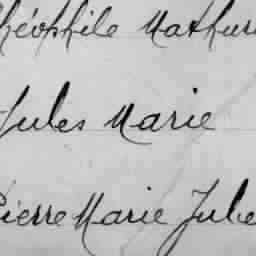 Théophile Mathuri
Jules Marie
Pierre Marie Jule